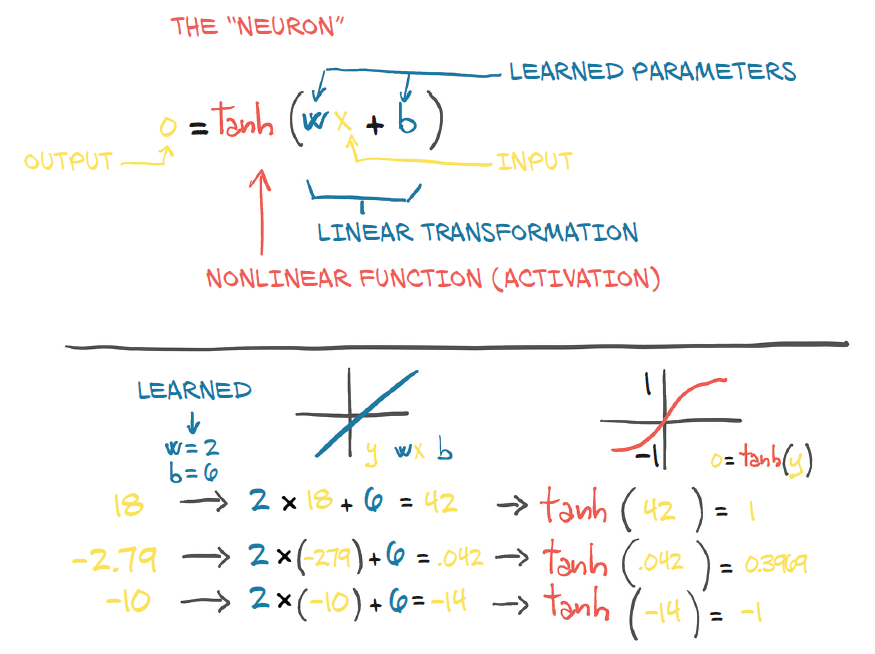 THE "NEURON"
LEARNED PARAMETERS
o = tanh (wx + b)
OUTPUT
INPUT
LINEAR TRANSFORMATION
NONLINEAR FUNCTION (ACTIVATION)
LEARNED
w=2
b=6
y wx b
1
-1
o=tanh(y)
18 → 2 × 18 + 6 = 42 → tanh (42) = 1
-2.79 → 2 × (-279) + 6 = .042 → tanh (.042) = 0.3969
-10 → 2 × (-10) + 6 = -14 → tanh (-14) = -1